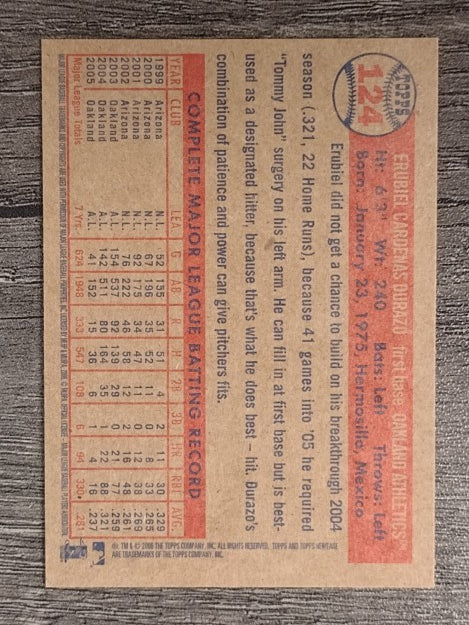 TOPPS
124
ERUBIEL CARDENAS DURAZO first base OAKLAND ATHLETICS
Ht: 6'3" Wt: 240 Bats: Left Throws: Left
Born: January 23, 1975, Hermosillo, Mexico
Erubiel did not get a chance to build on his breakthrough 2004
season (.321, 22 Home Runs), because 41 games into '05 he required
"Tommy John" surgery on his left arm. He can fill in at first base but is best-
used as a designated hitter, because that's what he does best – hit. Durazo's
combination of patience and power can give pitchers fits.
COMPLETE MAJOR LEAGUE BATTING RECORD
YEAR CLUB LEA G AB R H 2B 3B HR RBI AVG.
1999 Arizona N.L. 52 155 31 51 4 2 11 30 .329
2000 Arizona N.L. 67 196 35 52 11 0 8 33 .265
2001 Arizona N.L. 92 175 34 47 11 0 12 38 .269
2002 Arizona N.L. 76 222 46 58 12 2 16 48 .261
2003 Oakland A.L. 154 537 92 139 29 0 21 77 .259
2004 Oakland A.L. 142 511 80 164 35 1 22 88 .321
2005 Oakland A.L. 41 152 15 36 6 1 4 16 .237
Major League Totals 7 Yrs. 624 1948 333 547 108 6 94 330 .281
® TM & © 2006 THE TOPPS COMPANY, INC. ALL RIGHTS RESERVED. TOPPS AND TOPPS HERITAGE
ARE TRADEMARKS OF THE TOPPS COMPANY, INC.